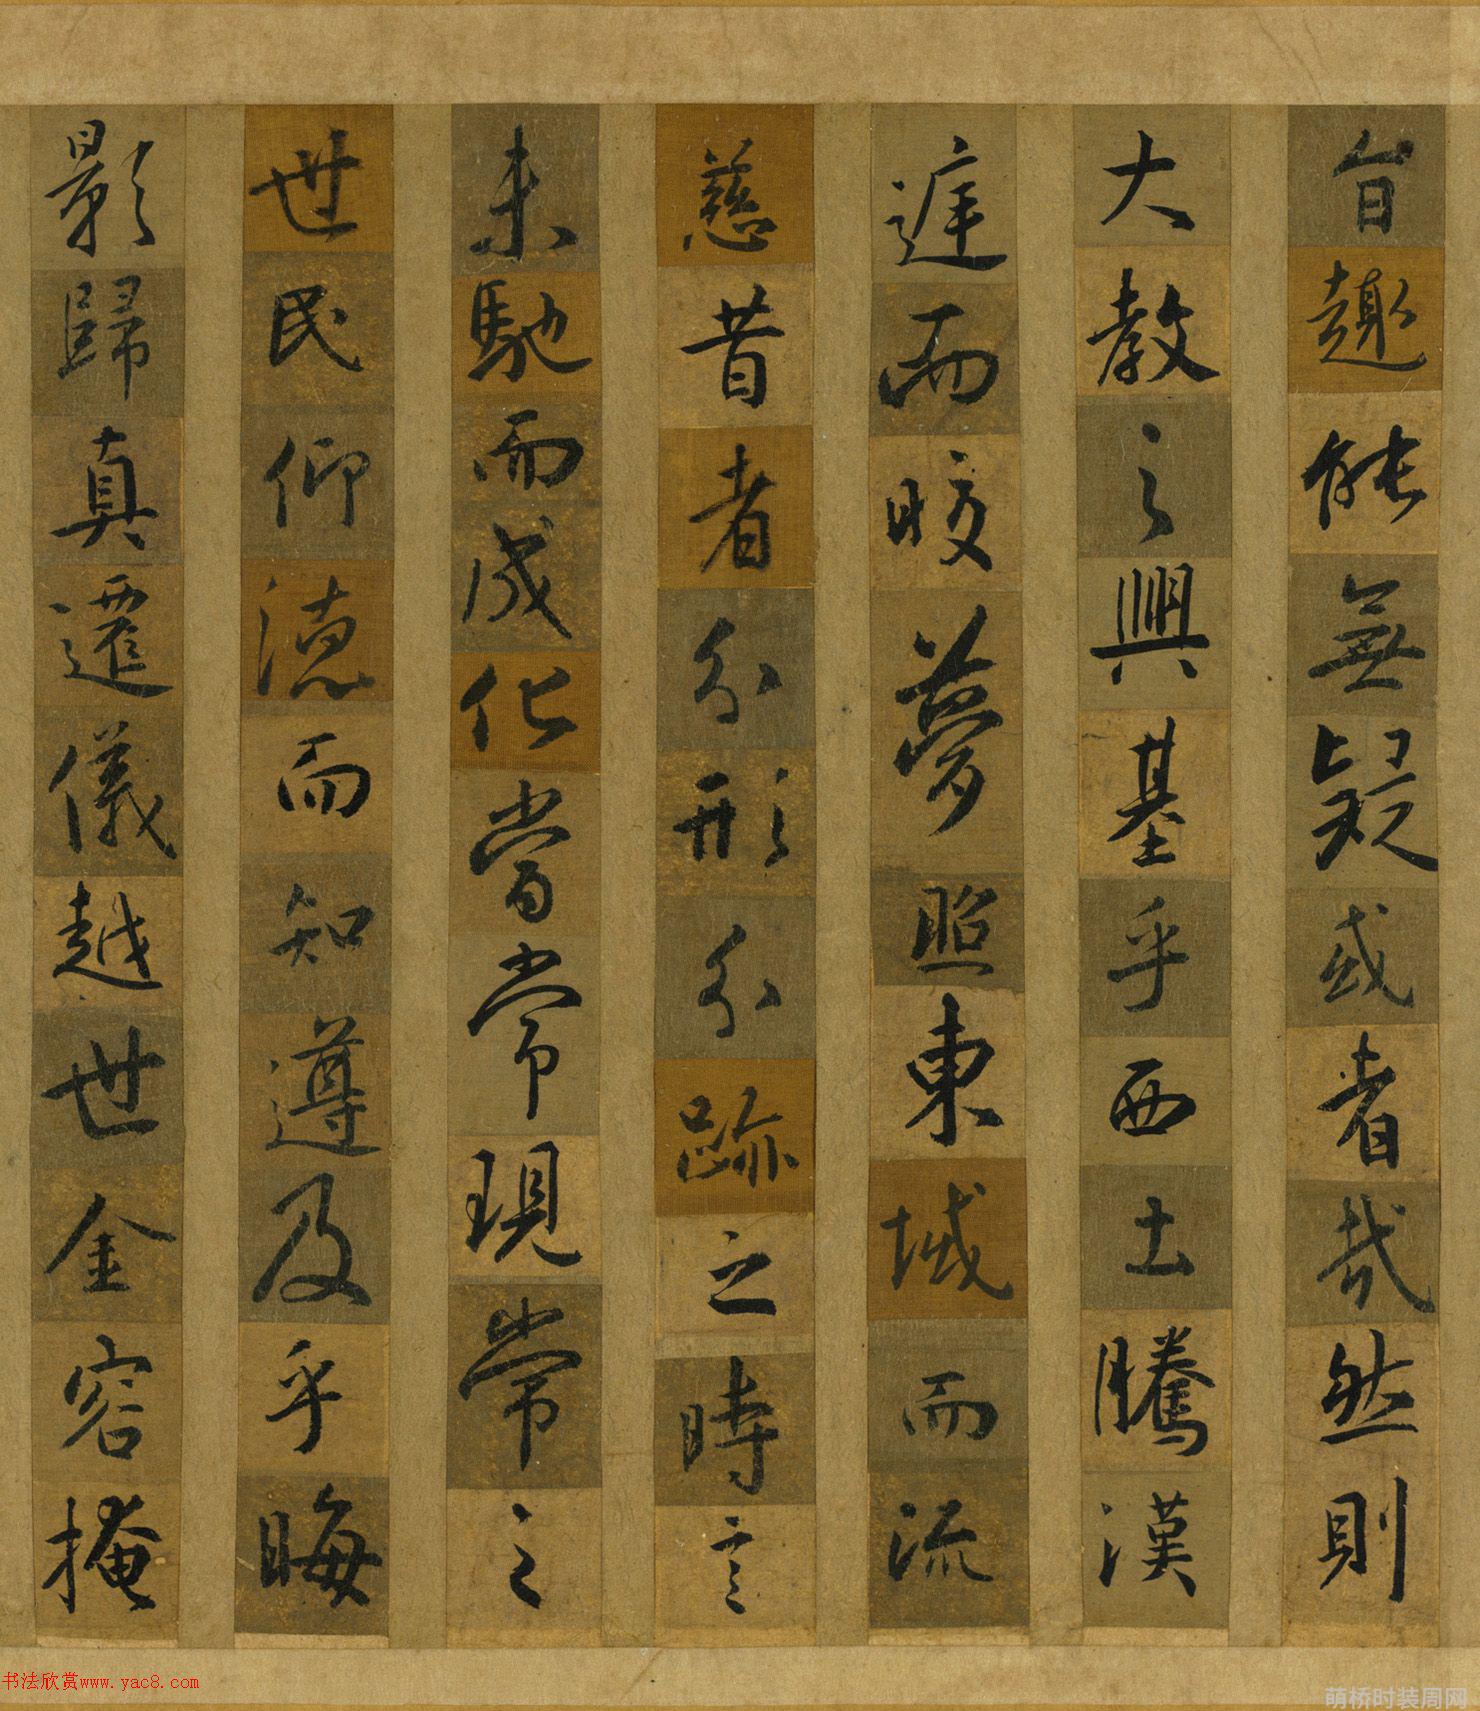 旨趣能無疑或者哉然則
大教之興基乎西土騰漢
庭而皎夢照東域而流
慈昔者分形分跡之時言
未馳而成化當常現常之
世民仰德而知遵及乎晦
影歸真遷儀越世金容掩
书法欣赏www.yac8.com
萌桥时装周网